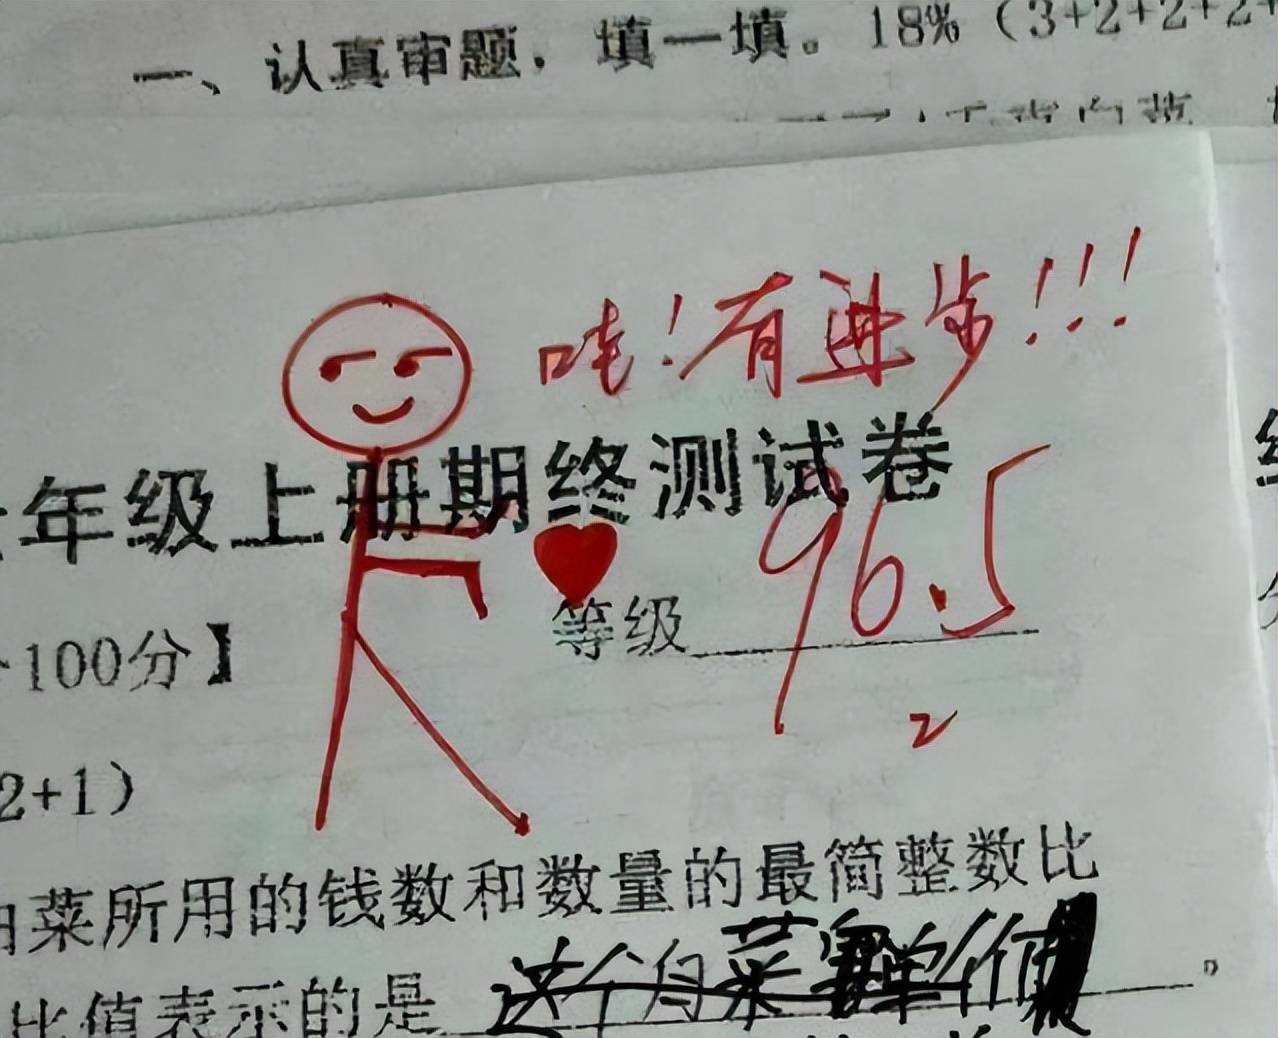 一、认真审题，填一填。18%（3+2+2+2+
哇！有进步！！！
年级上册期终测试卷
96.5
等级
100分】
2
2+1）
菜所用的钱数和数量的最简整数比
比值表示的是 这个白菜